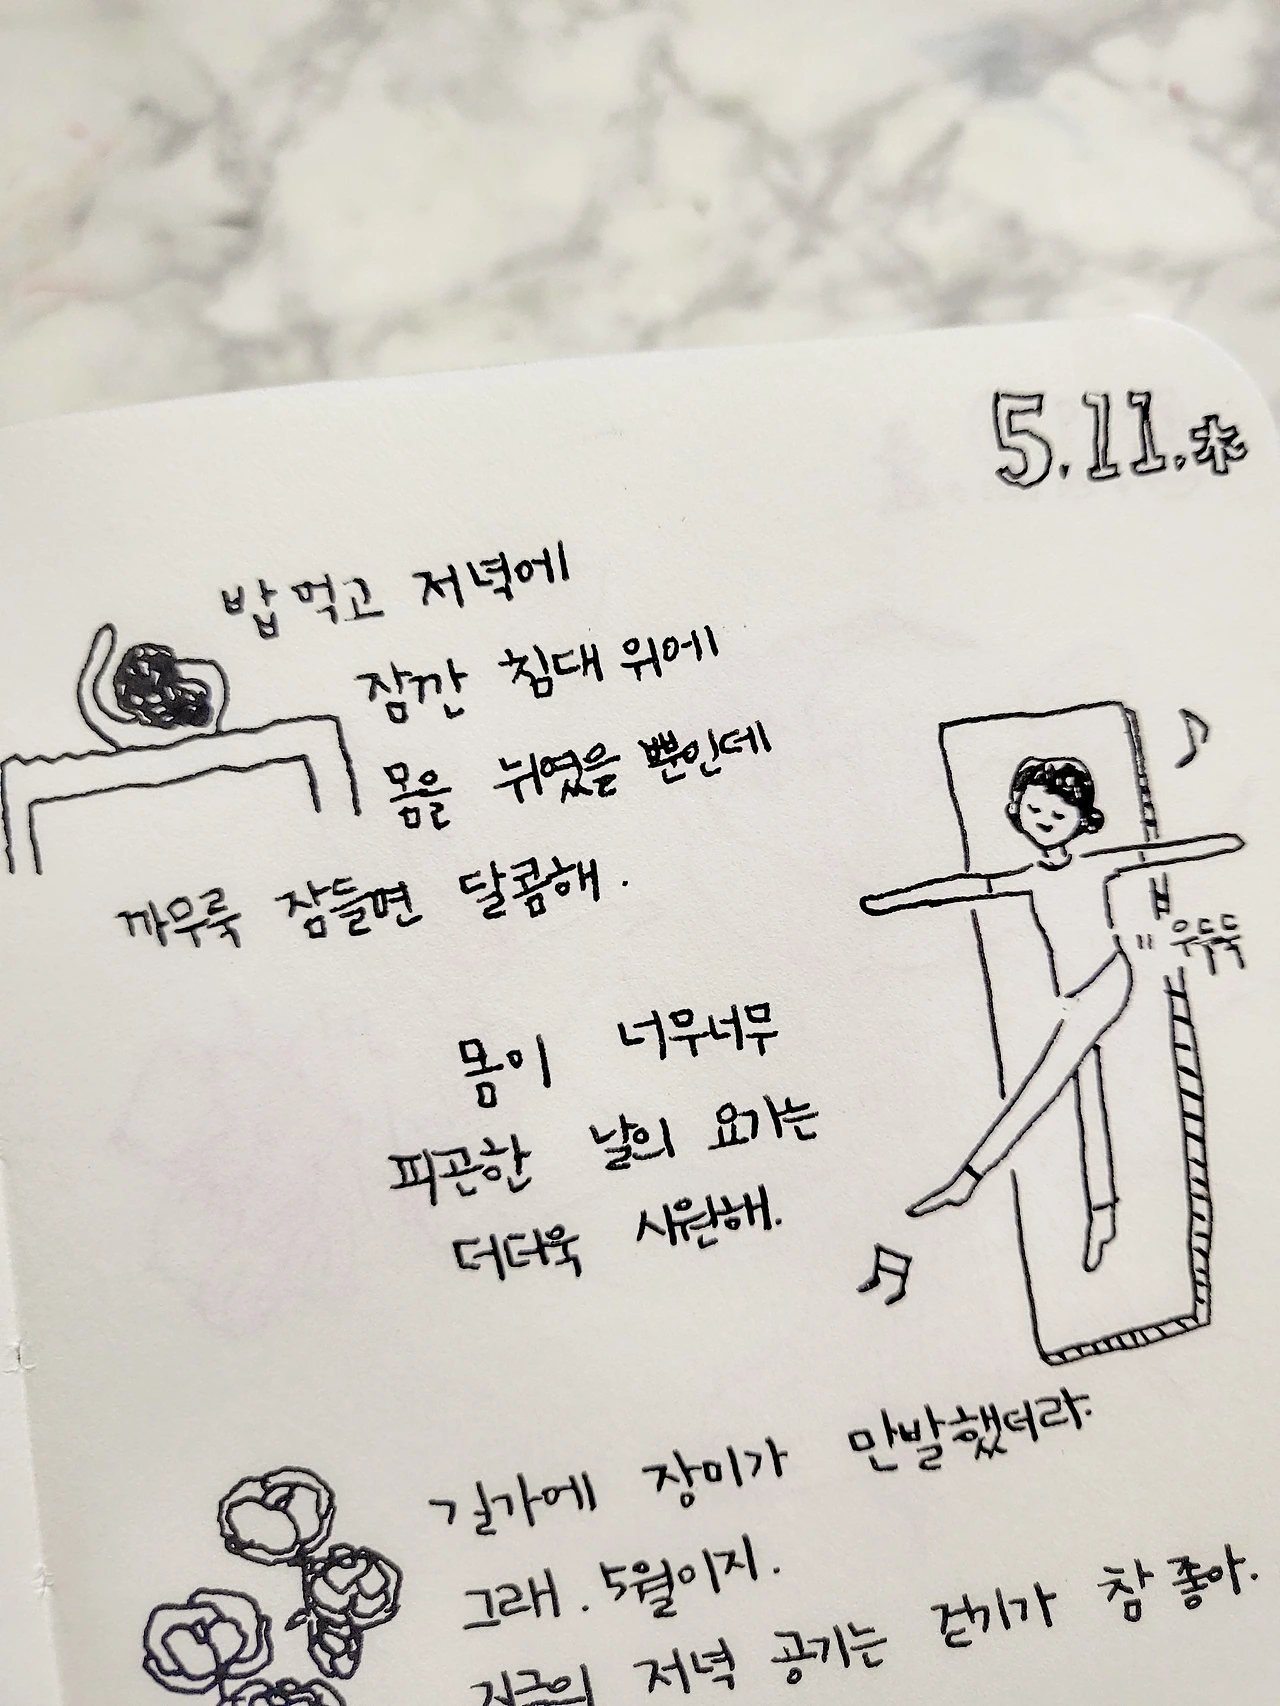 5.11.木
밥 먹고 저녁에
잠깐 침대 위에
몸을 뉘였을 뿐인데
까무룩 잠들면 달콤해.
우두둑
몸이 너무너무
피곤한 날의 요가는
더더욱 시원해.
길가에 장미가 만발했더라.
그래. 5월이지.
지금의 저녁 공기는 걷기가 참 좋아.